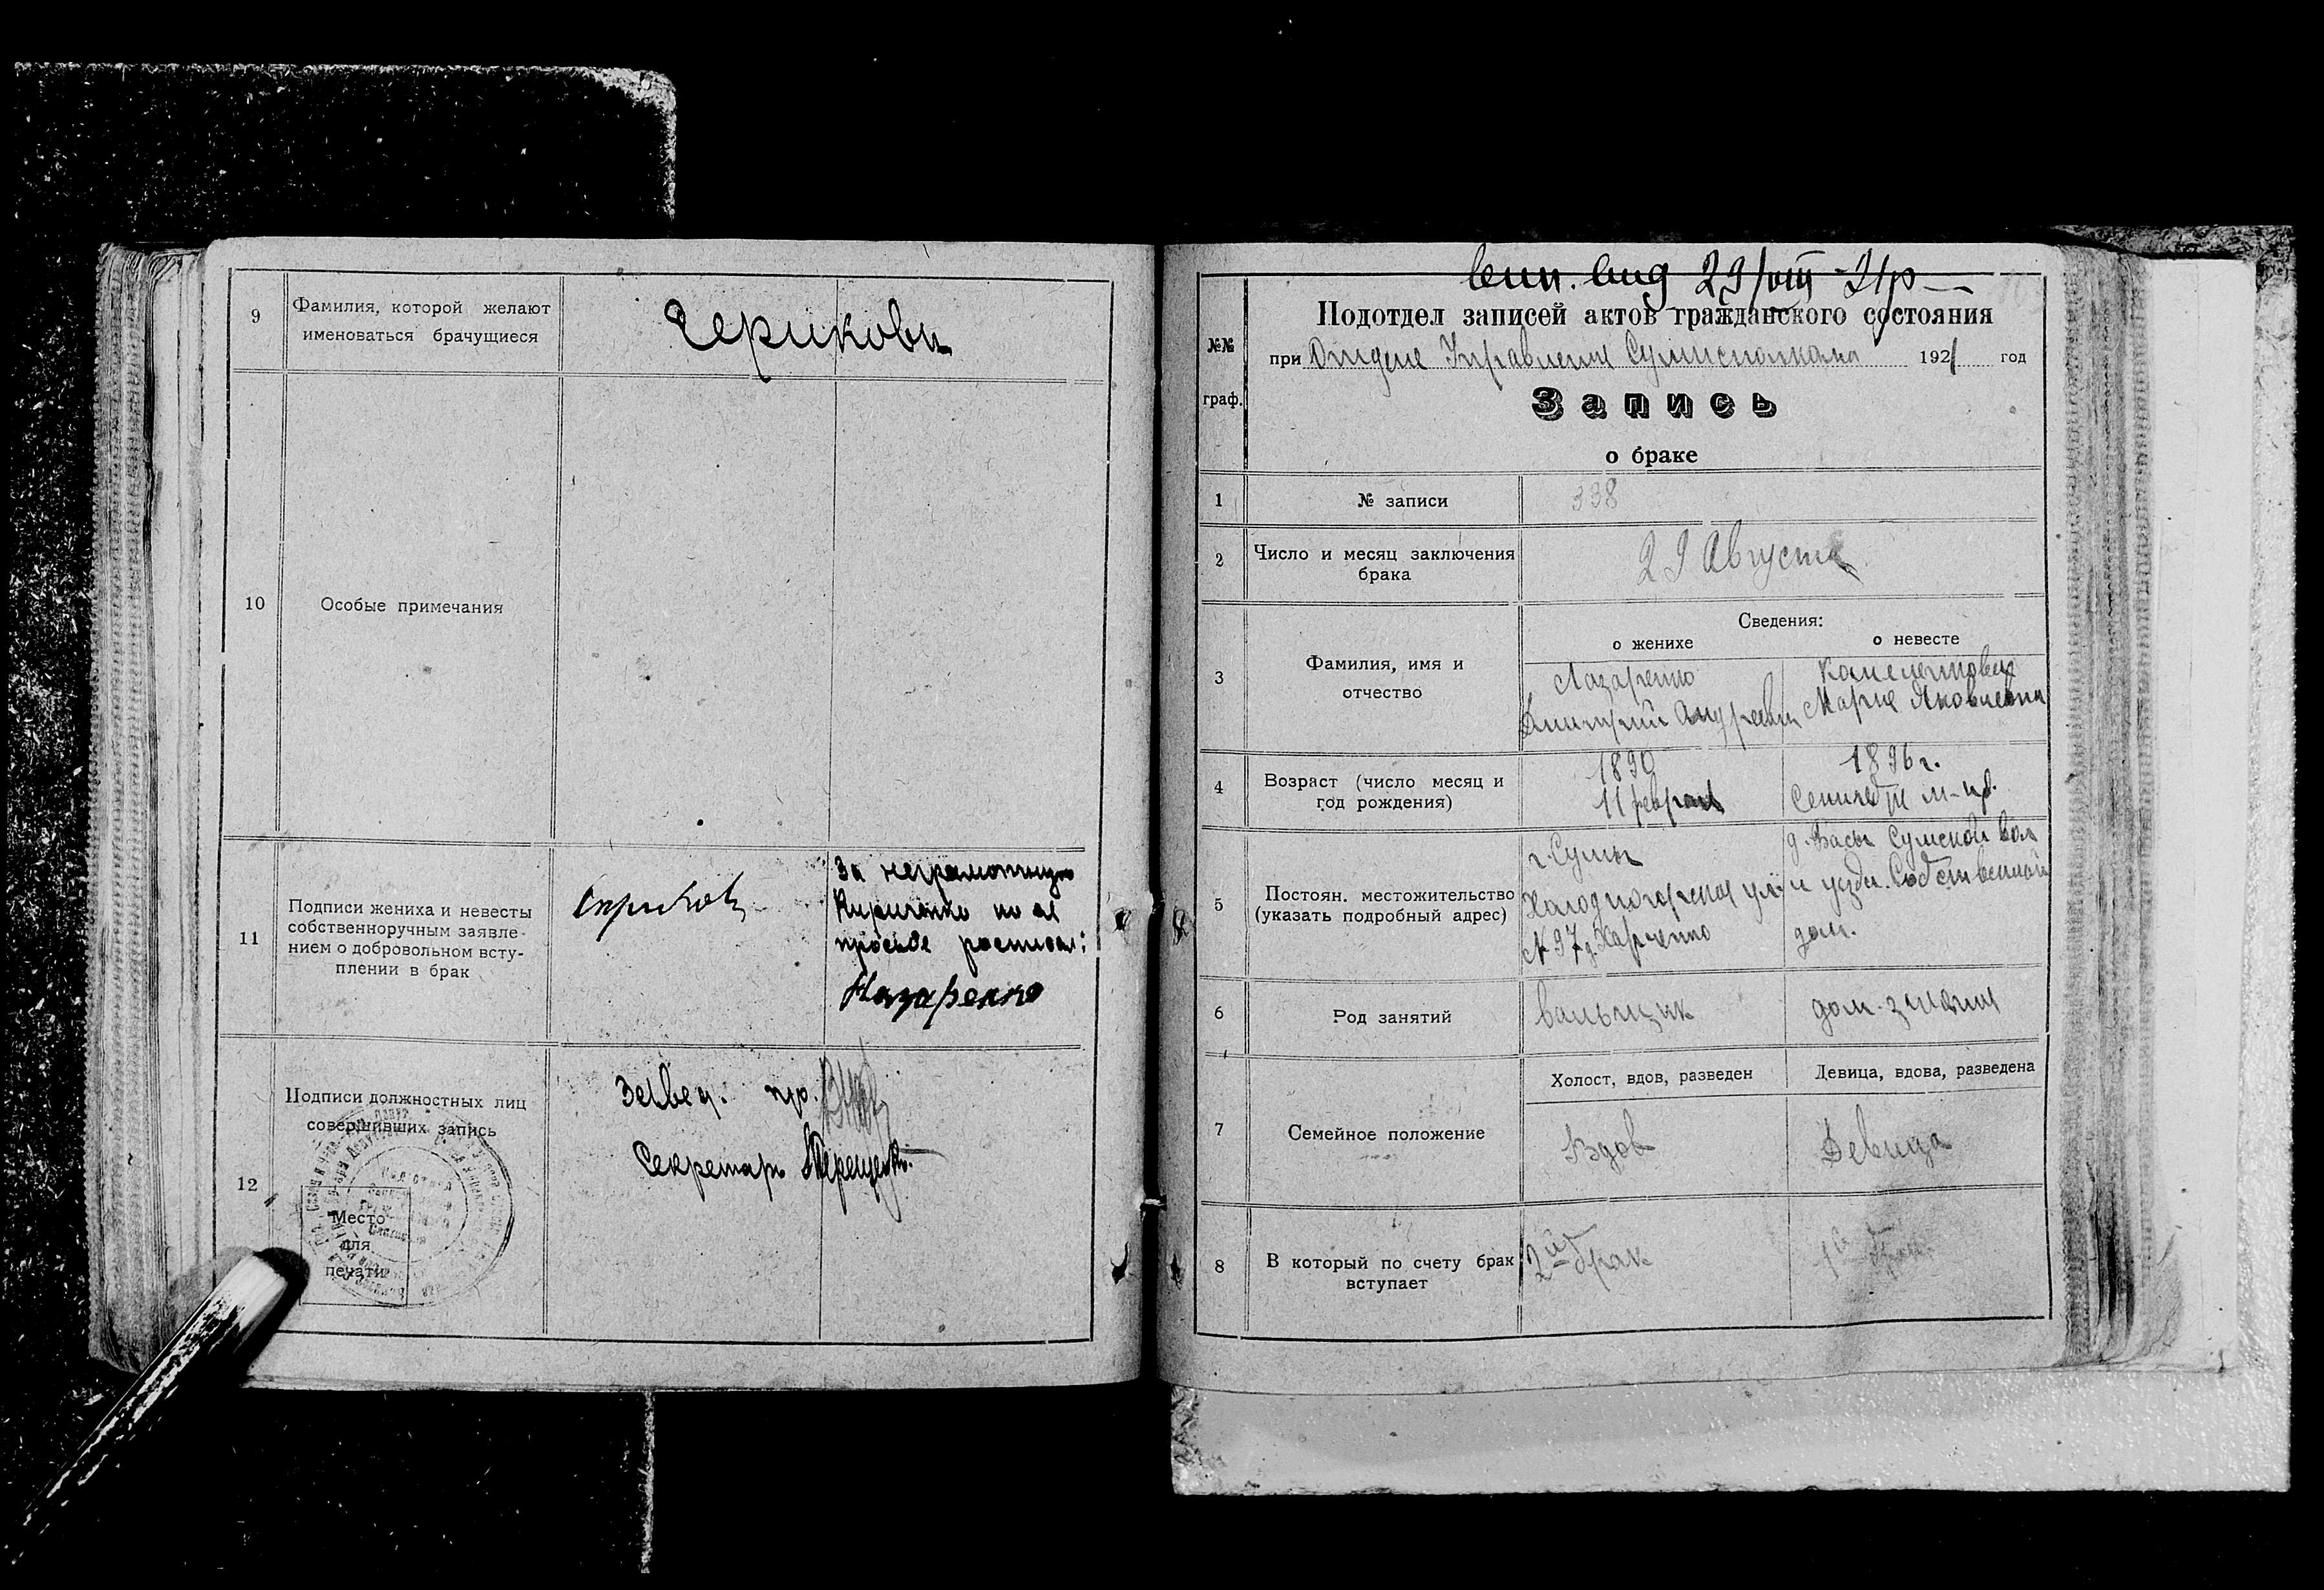 9
Фамилия, которой желают
именоваться брачущиеся
10
Особые примечания
11
Подписи жениха и невесты
собственноручным заявле-
нием о добровольном всту-
плении в брак
За неграмотную
Кириченко по ее
просьбе расписал:
Назаренко
12
Подписи должностных лиц
совершивших запись
Секретарь
Место
для
печати
29/VIII-21р
№№
граф.
Подотдел записей актов гражданского состояния
при Отделе Управления 1921 год
Запись
о браке
1
№ записи
338
2
Число и месяц заключения
брака
29 Августа
3
Фамилия, имя и
отчество
Сведения:
о женихе
о невесте
Лазаренко
Дмитрий Андреевич
Мария Яковлевна
4
Возраст (число месяц и
год рождения)
1890
11 февраля
1896 г.
5
Постоян. местожительство
(указать подробный адрес)
г. Сумы
Холодногорская ул.
№ 97 д. Харченко
д. Басы Сумской вол
и уезда. Собственный
дом.
6
Род занятий
вальщик
дом.
7
Семейное положение
Холост, вдов, разведен
Девица, вдова, разведена
Вдов
Девица
8
В который по счету брак
вступает
2ой брак
1й брак